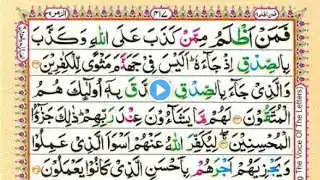 فمن اظلم
٤٦٧
الزمر ٣٩
فَمَنْ اَظْلَمُ مِمَّنْ كَذَبَ عَلَى اللّٰهِ وَكَذَّبَ
بِالصِّدْقِ اِذْ جَآءَهٗ ؕ اَلَيْسَ فِيْ جَهَنَّمَ مَثْوًى لِّلْكٰفِرِيْنَ
وَالَّذِيْ جَآءَ بِالصِّدْقِ وَصَدَّقَ بِهٖۤ اُولٰٓئِكَ هُمُ
الْمُتَّقُوْنَ لَهُمْ مَّا يَشَآءُوْنَ عِنْدَ رَبِّهِمْ ؕ ذٰلِكَ جَزٰٓؤُا
الْمُحْسِنِيْنَ لِيُكَفِّرَ اللّٰهُ عَنْهُمْ اَسْوَاَ الَّذِيْ عَمِلُوْا
وَيَجْزِيَهُمْ اَجْرَهُمْ بِاَحْسَنِ الَّذِيْ كَانُوْا يَعْمَلُوْنَ
ng The Voice Of The Letters)